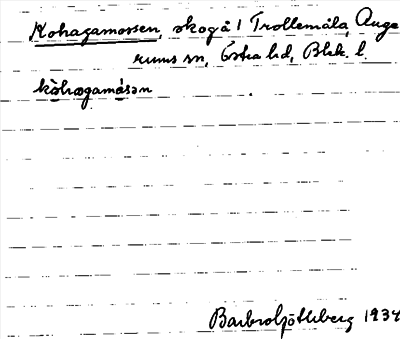 Kohagamossen, skogå l Trollemåla, Auge
rums sn, Östra hd, Blek. l.
kòhagamåsən
Barbro Götlberg 1934